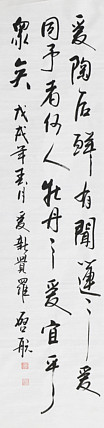 爱陶后鲜有闻莲之爱
同予者何人牡丹之爱宜乎
众矣 戊戌年春月爱新觉罗启航